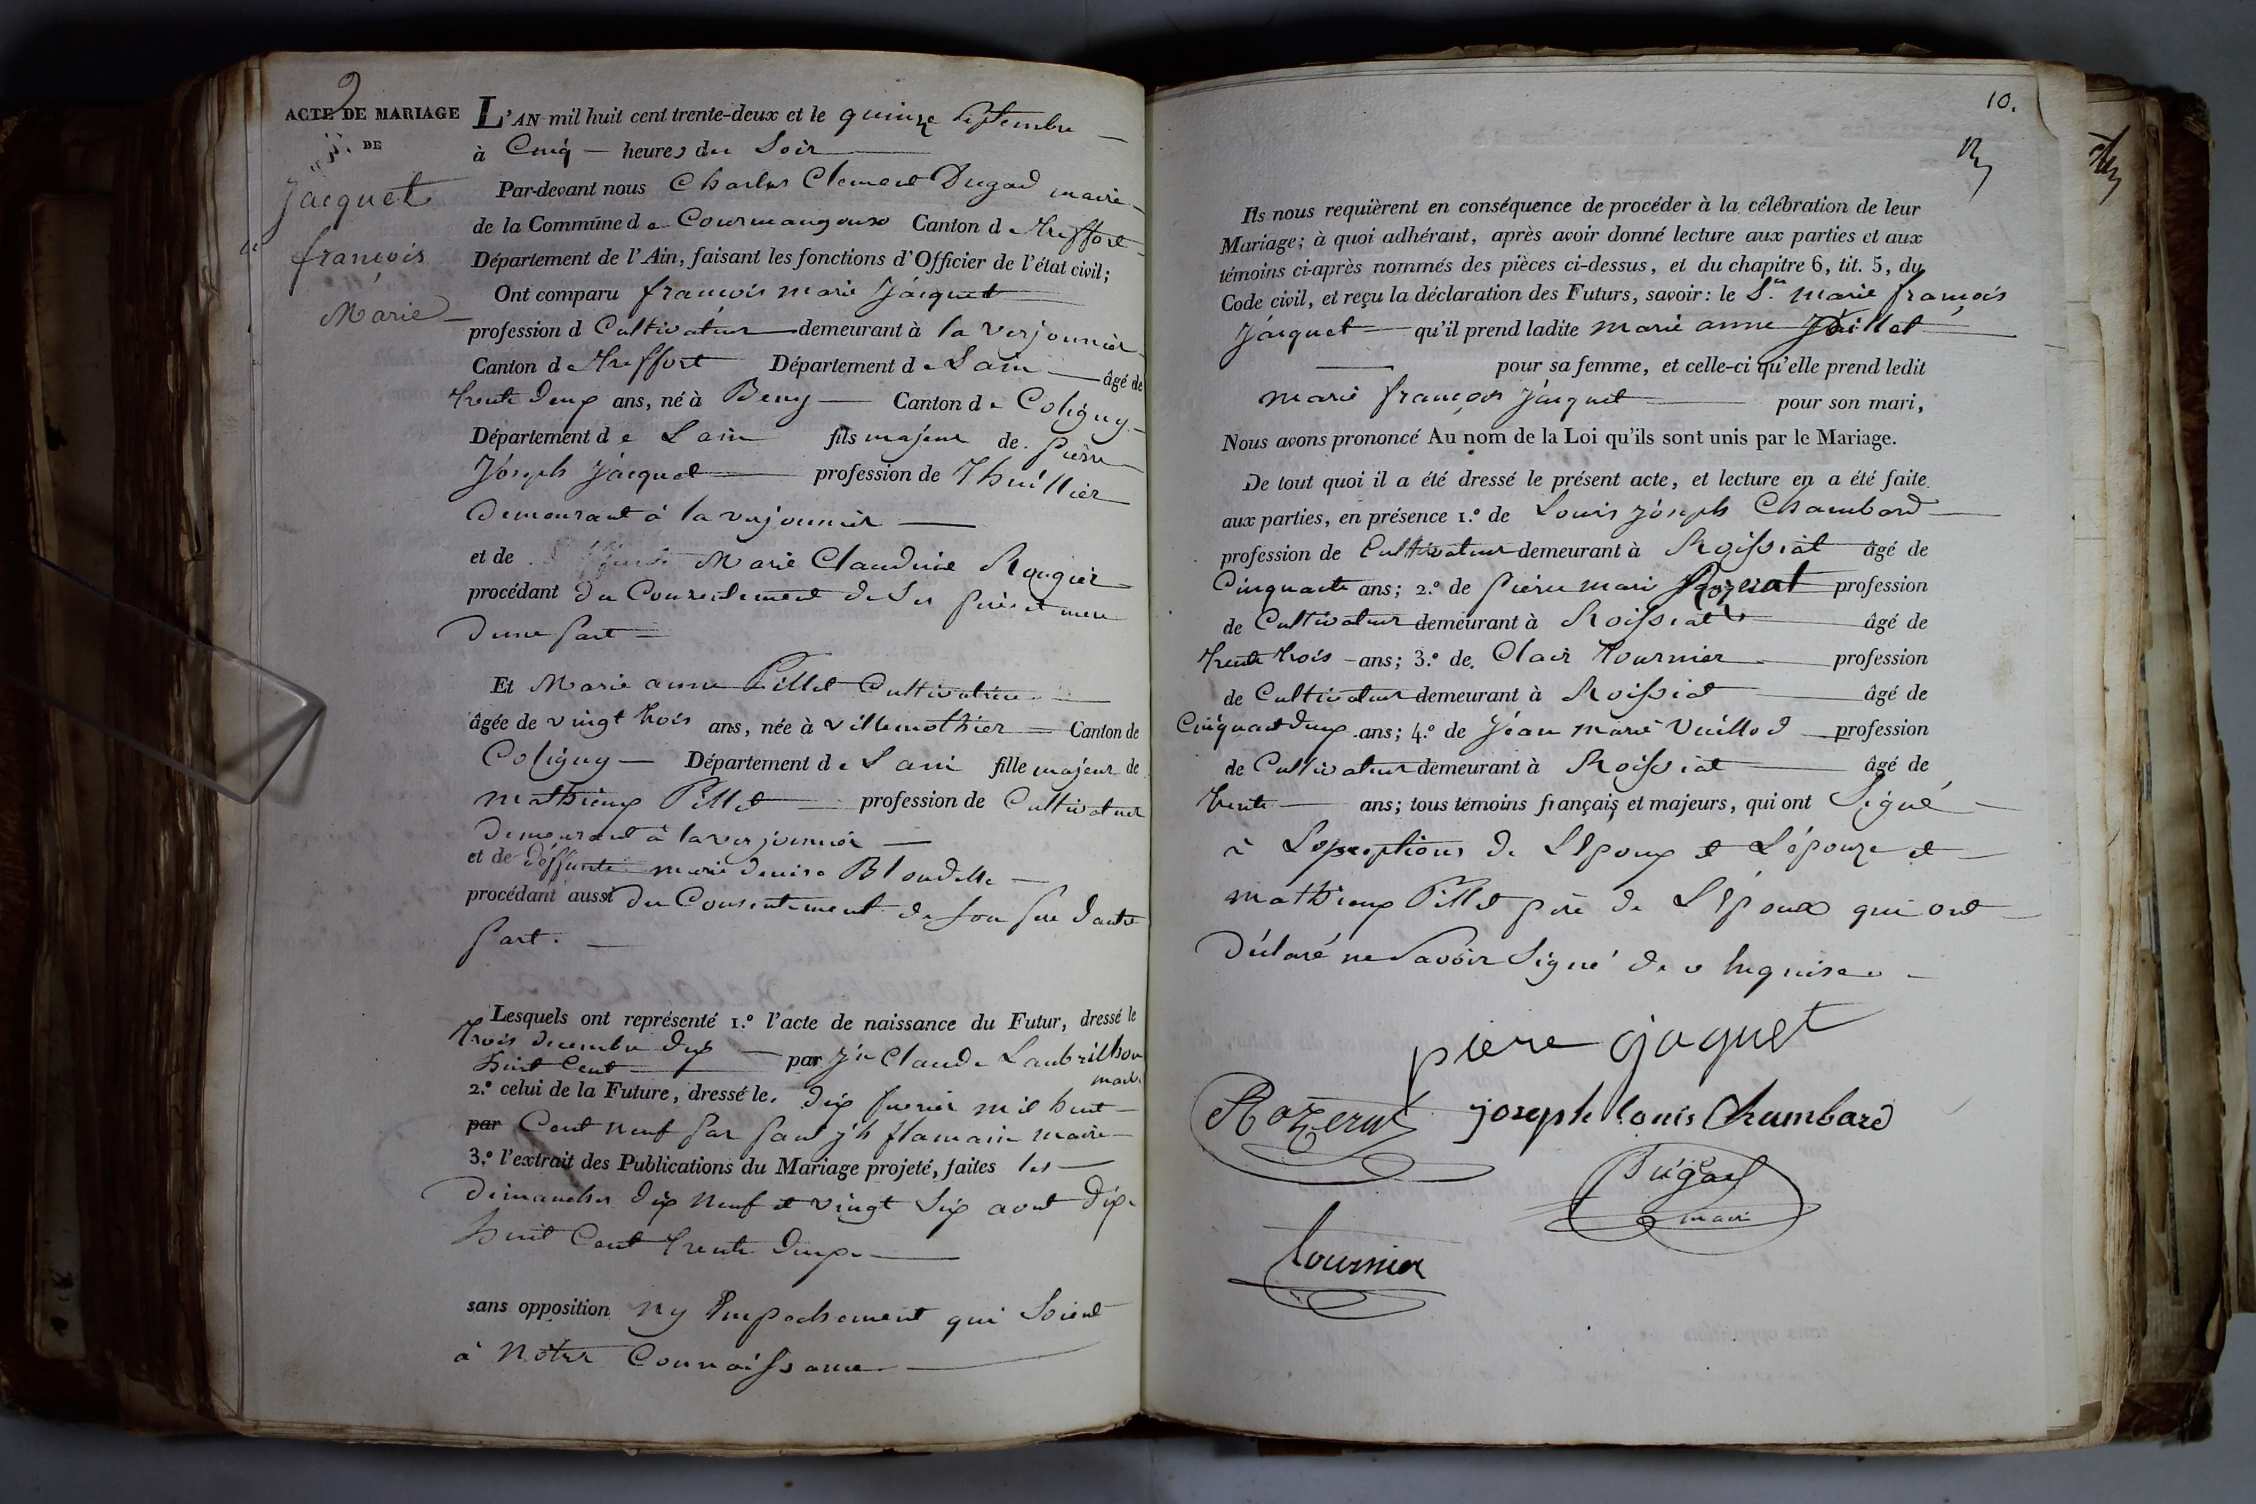 9
ACTE DE MARIAGE
DE
Jacquet
françois
Marie
L'AN mil huit cent trente-deux et le quinze septembre
à Cinq heures du Soir
Par-devant nous Charles Clement Dugad maire
de la Commune de Courmangoux Canton de Treffort
Département de l'Ain, faisant les fonctions d'Officier de l'état civil;
Ont comparu françois marie Jacquet
profession d Cultivateur demeurant à la verjonnier
Canton de Treffort Département de Lain âgé de
trente deux ans, né à Beny Canton de Coligny
Département de Lain fils majeur de pierre
Joseph Jacquet profession de Thuillier
demeurant à la verjonnier
et de Marie Claudine Rougier
procédant du Consentement de ses père et mere
dune part
Et Marie anne Pillet Cultivatrice
âgée de vingt trois ans, née à villemothier Canton de
Coligny Département de Lain fille majeur de
mathieux Pillet profession de Cultivateur
demeurant à la verjonnier
et de déffunte marie denise Blondelle
procédant aussi du Consentement de son pere dautre
part.
Lesquels ont représenté 1.º l'acte de naissance du Futur, dressé le
trois decembre dix par Jn Claude Laubrilhon
huit Cent maire
2.º celui de la Future, dressé le. dix fevrier mil huit
par Cent neuf par paul jh flamain maire
3.º l'extrait des Publications du Mariage projeté, faites les
dimanches dix neuf et vingt six aout dix
huit Cent trente deux
sans opposition ny Empechement qui soient
à notre Connaissance
10.
Ils nous requièrent en conséquence de procéder à la célébration de leur
Mariage; à quoi adhérant, après avoir donné lecture aux parties et aux
témoins ci-après nommés des pièces ci-dessus, et du chapitre 6, tit. 5, du
Code civil, et reçu la déclaration des Futurs, savoir: le Sr. marie françois
Jacquet qu'il prend ladite marie anne Pillet
pour sa femme, et celle-ci qu'elle prend ledit
marie françois Jacquet pour son mari,
Nous avons prononcé Au nom de la Loi qu'ils sont unis par le Mariage.
De tout quoi il a été dressé le présent acte, et lecture en a été faite
aux parties, en présence 1.º de Louis Joseph Chambard
profession de Cultivateur demeurant à Roissiat âgé de
Cinquante ans; 2.º de pierre mari Rozerat profession
de Cultivateur demeurant à Roissiat âgé de
trente trois ans; 3.º de. Clair tournier profession
de Cultivateur demeurant à Roissiat âgé de
Cinquant deux ans; 4.º de Jean marie Vuillod profession
de Cultivateur demeurant à Roissiat âgé de
trente ans; tous témoins français et majeurs, qui ont Signé
à Lexception de L'Epoux et L'épouze et
mathieux Pillet père de L'Epoux qui ont
déclaré ne savoir Signé de ce Enquise
piere jaquet
Rozerat joseph louis Chambard
Dugad
maire
tournier